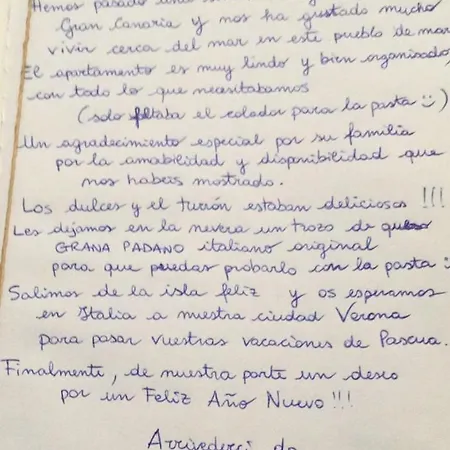 Hemos pasado una
Gran Canaria y nos ha gustado mucho
vivir cerca del mar en este pueblo de mar
El apartamento es muy lindo y bien organizado,
con todo lo que necesitabamos
(solo faltaba el colador para la pasta :))
Un agradecimiento especial por su familia
por la amabilidad y disponibilidad que
nos habeis mostrado.
Los dulces y el turrón estaban deliciosos !!!
Les dejamos en la nevera un trozo de queso
GRANA PADANO italiano original
para que puedas probarlo con la pasta :)
Salimos de la isla feliz y os esperamos
en Italia a nuestra ciudad Verona
para pasar vuestras vacaciones de Pascua.
Finalmente, de nuestra parte un deseo
por un Feliz Año Nuevo !!!
Arrivederci da